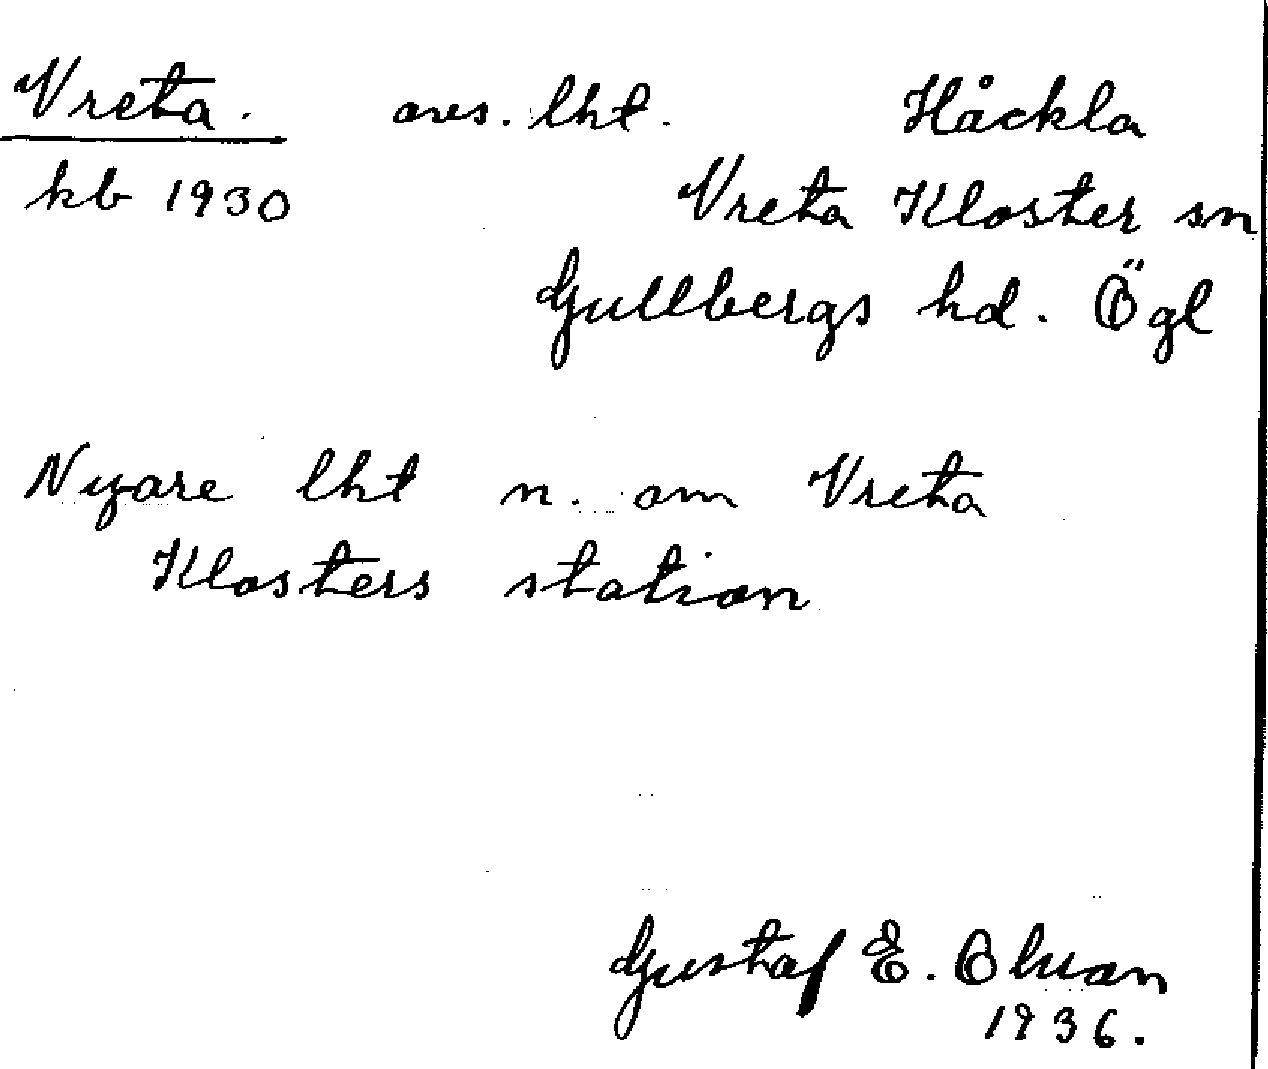 Vreta. avs. lht. Håckla
kb 1930 Vreta Kloster sn
Gullbergs hd. Ögl
Nyare lht n. om Vreta
Klosters station
Gustaf E. Olson
1936.